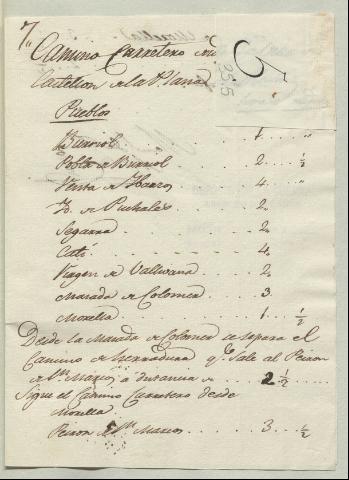 7"
5
Camino Carretero
3515
Castellon de la Plana
Pueblos
Burriol 1 "
Pobla de Burriol 2 ½
Venta de 4 "
Puchales 2
Segarra 2
Catí 4
Virgen de Vallivana 2
Masada de Colomer 3
Morella 1 ½
Desde la Masada de Colomer se separa el
Camino de herradura qe. Sale al Peiron
de Sn. Marcos a distancia de 2 ½
Sigue el Camino Carretero desde
Morella
Peiron de Sn. Marcos 3 ½